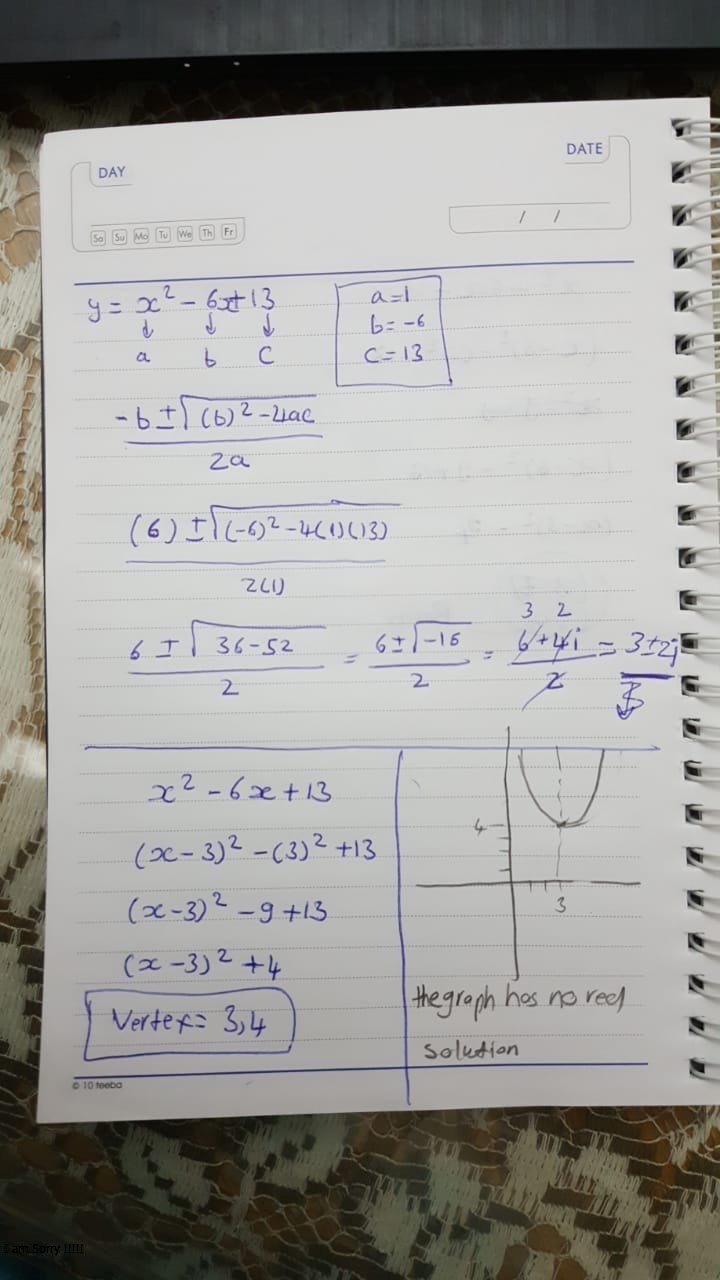 DAY
DATE
Sa Su Mo Tu We Th Fr
/ /
y = x² - 6x + 13
↓ ↓ ↓
a b c
a=1
b=-6
c=13
-b ± √(b)² - 4ac
2a
(6) ± √(-6)² - 4(1)(13)
2(1)
3 2
6 ± √36-52 = 6 ± √-16 = 6+4i = 3±2i
2 2 2
x² - 6x + 13
(x-3)² - (3)² + 13
(x-3)² - 9 + 13
(x-3)² + 4
Vertex = 3,4
4
3
the graph has no reel
solution
© 10 teeba
I am Sorry !!!!!